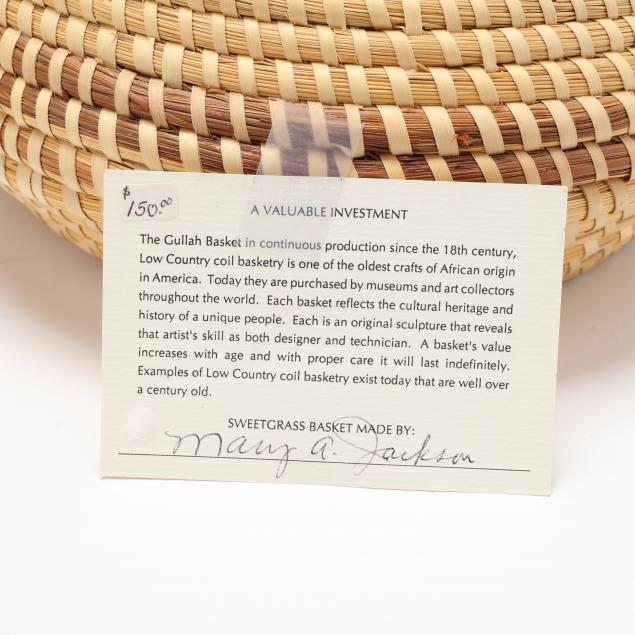 $150.00
A VALUABLE INVESTMENT
The Gullah Basket in continuous production since the 18th century,
Low Country coil basketry is one of the oldest crafts of African origin
in America. Today they are purchased by museums and art collectors
throughout the world. Each basket reflects the cultural heritage and
history of a unique people. Each is an original sculpture that reveals
that artist's skill as both designer and technician. A basket's value
increases with age and with proper care it will last indefinitely.
Examples of Low Country coil basketry exist today that are well over
a century old.
SWEETGRASS BASKET MADE BY:
Mary A. Jackson